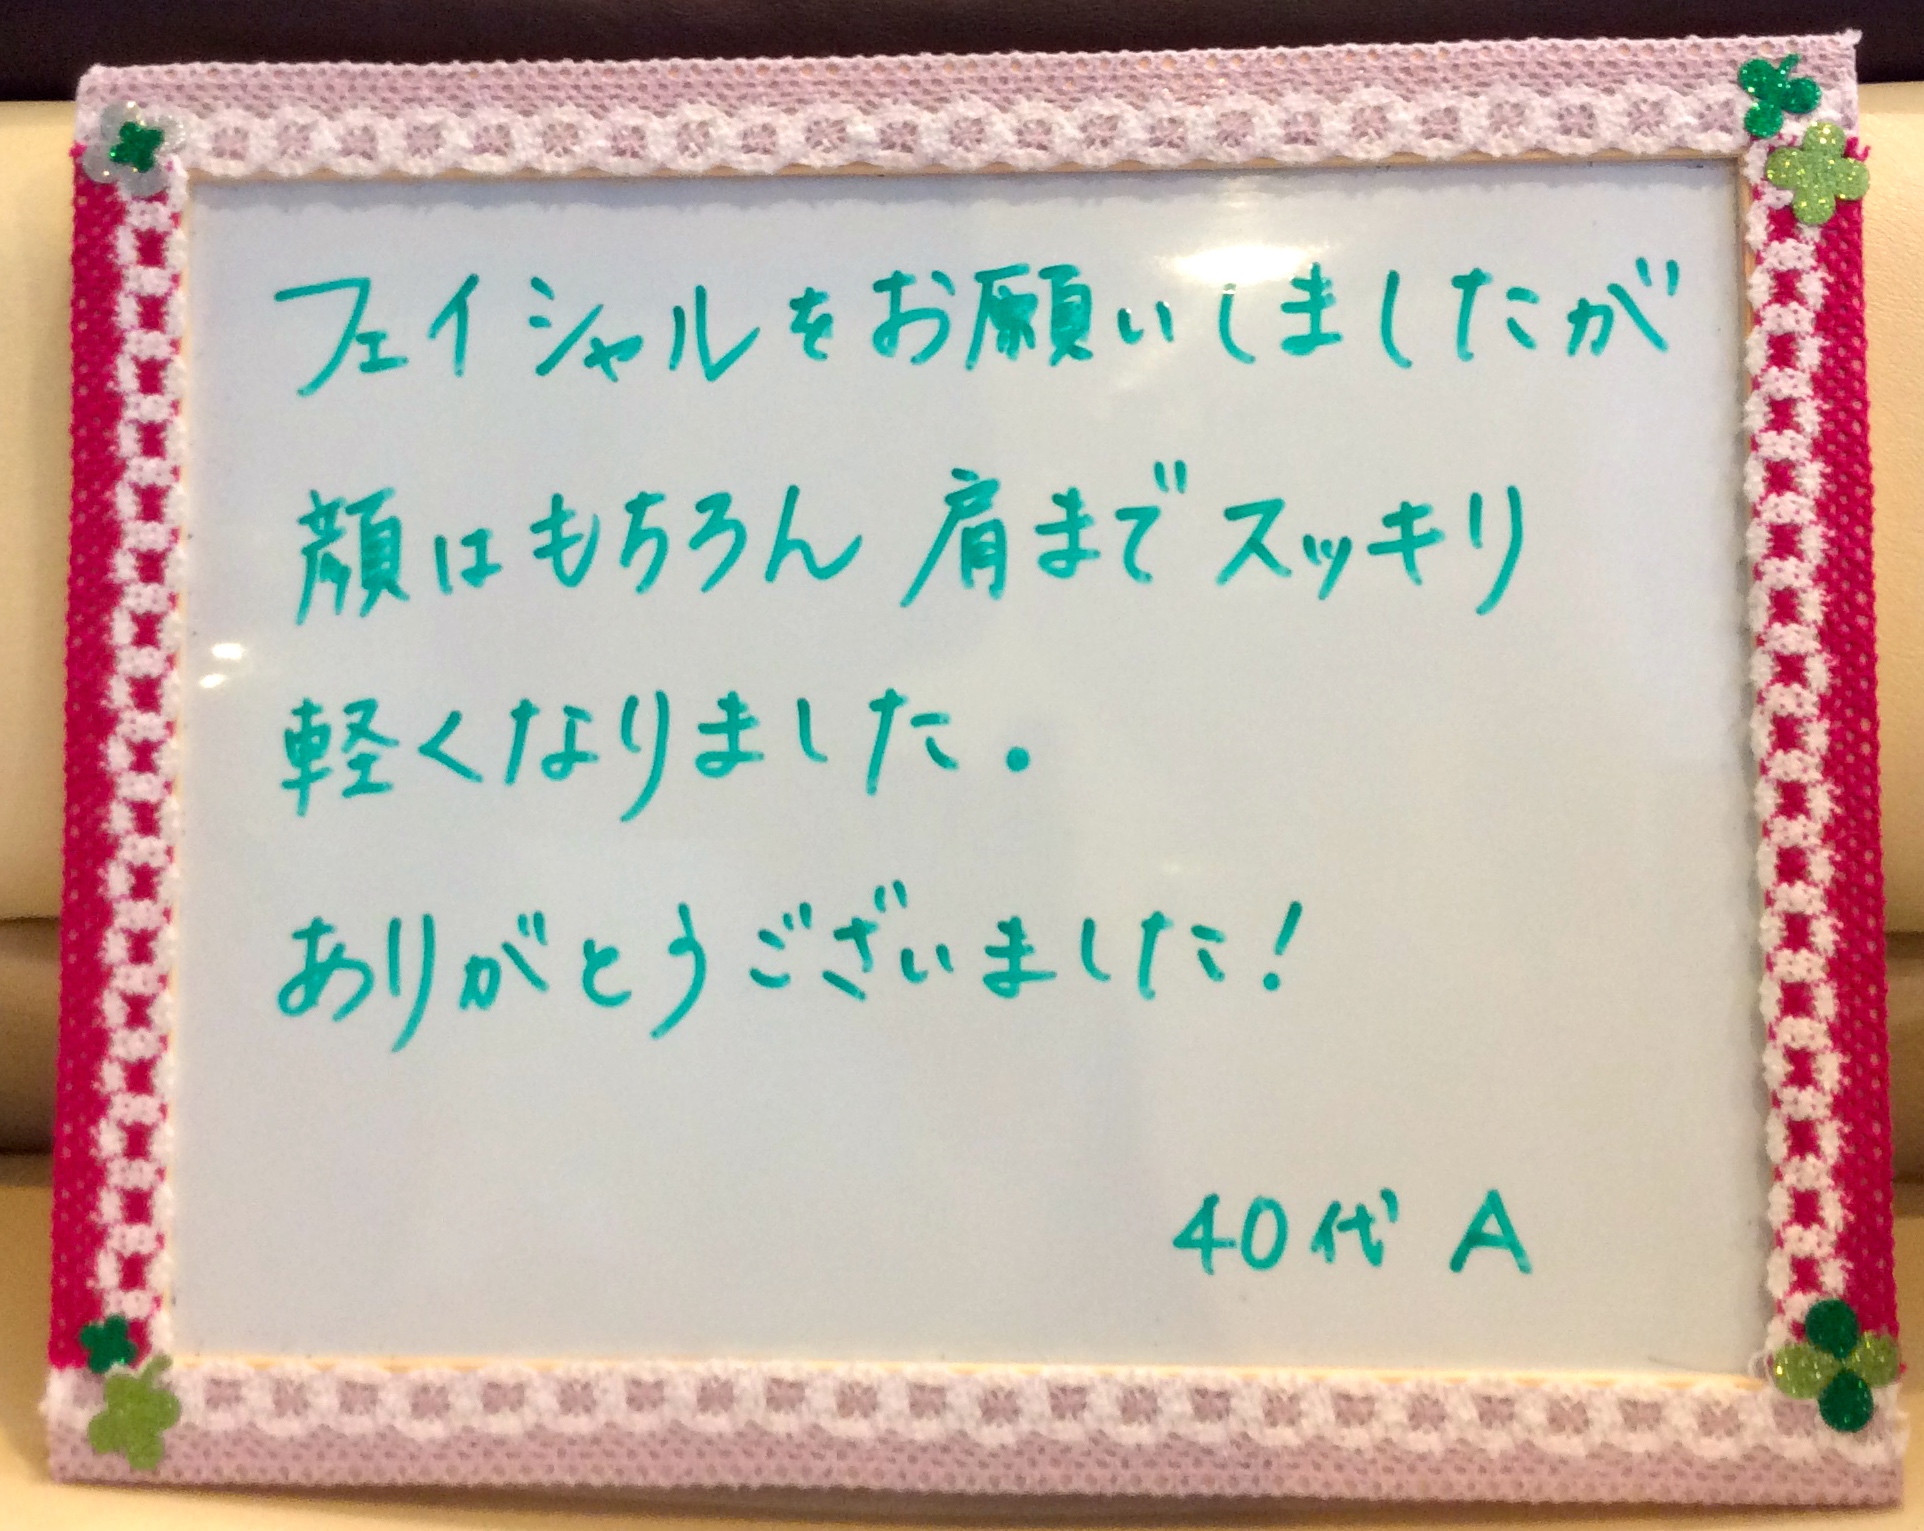 フェイシャルをお願いしましたが
顔はもちろん 肩までスッキリ
軽くなりました.
ありがとうございました!
40代 A